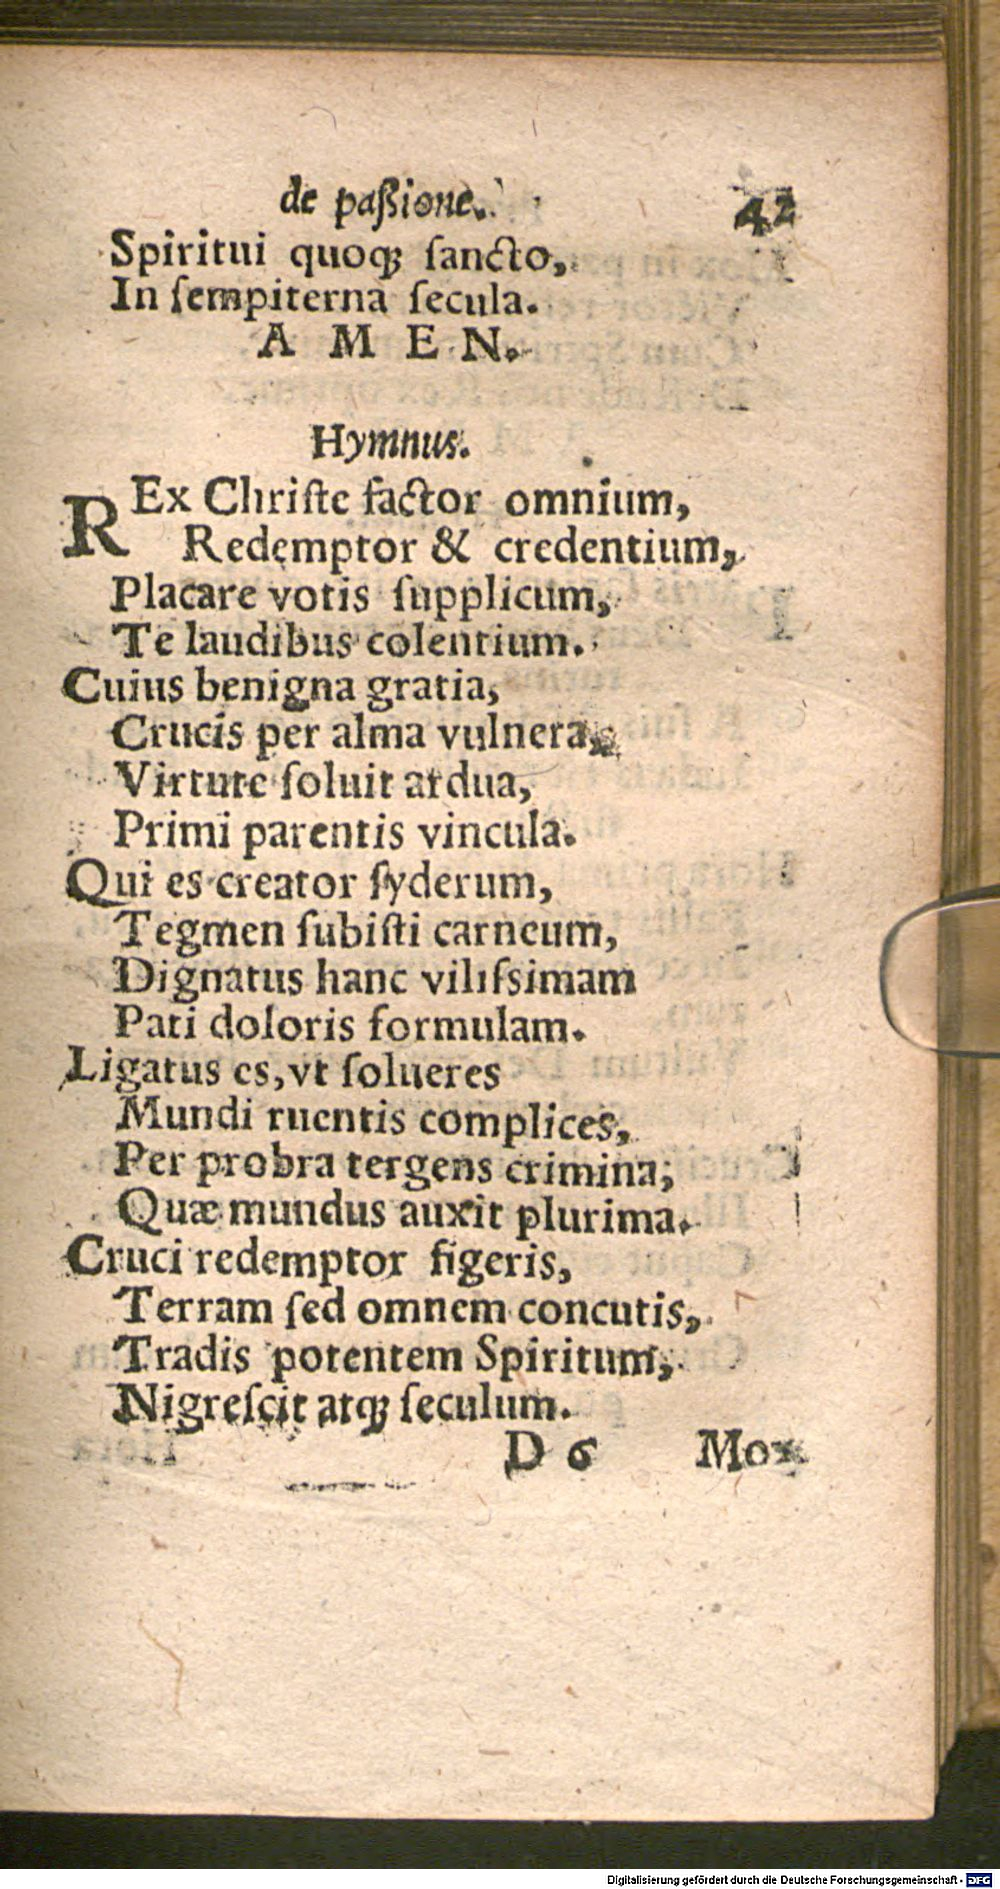 de paßione. 42
Spiritui quoqꝫ ſancto,
In ſempiterna ſecula.
A M E N.
Hymnus.
REx Chriſte factor omnium,
Redemptor & credentium,
Placare votis ſupplicum,
Te laudibus colentium.
Cuius benigna gratia,
Crucis per alma vulnera,
Virtute ſoluit ardua,
Primi parentis vincula.
Qui es creator ſyderum,
Tegmen ſubiſti carneum,
Dignatus hanc viliſsimam
Pati doloris formulam.
Ligatus es, vt ſolueres
Mundi ruentis complices,
Per probra tergens crimina,
Quæ mundus auxit plurima.
Cruci redemptor figeris,
Terram ſed omnem concutis,
Tradis potentem Spiritum,
Nigreſcit atqꝫ ſeculum.
D 6 Mox
Digitalisierung gefördert durch die Deutsche Forschungsgemeinschaft - DFG